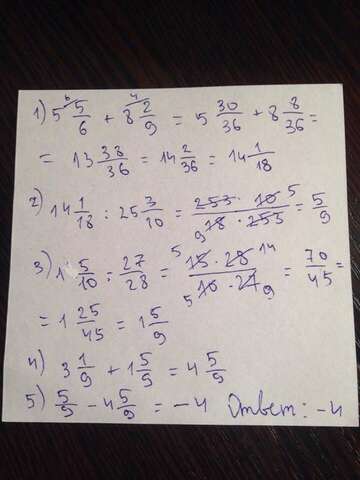 1) 5 5/6 + 8 2/9 = 5 30/36 + 8 8/36 =
= 13 38/36 = 14 2/36 = 14 1/18
2) 14 1/18 : 25 3/10 = 253 · 10 5 / 9 18 · 253 = 5/9
3) 1 5/10 : 27/28 = 5 15 · 28 14 / 5 10 · 27 9 = 70/45 =
= 1 25/45 = 1 5/9
4) 3 1/9 + 1 5/9 = 4 5/9
5) 5/9 - 4 5/9 = -4 Ответ: -4